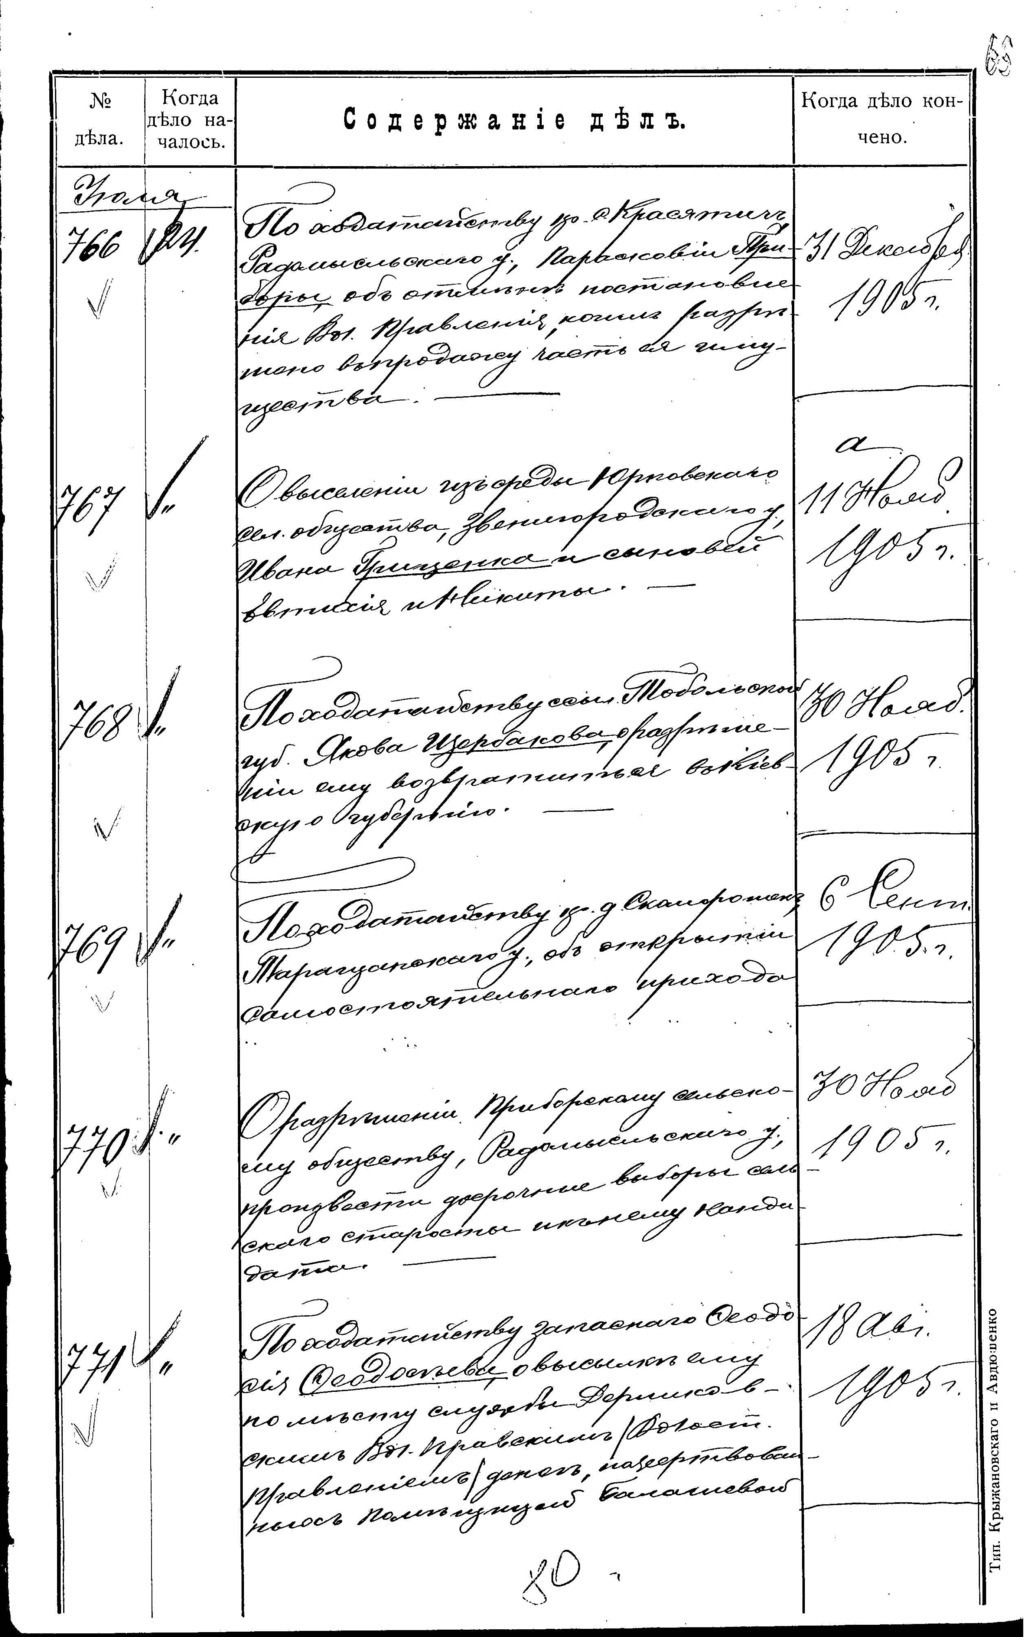 65
№ дѣла.
Когда дѣло на-
чалось.
Содержаніе дѣлъ.
Когда дѣло кон-
чено.
Іюля
766
24.
По ходатайству кр. с. Красятичъ
Радомысльскаго у., Парасковіи При-
боры, объ отмѣнѣ постановле
нія Вол. Правленія, коимъ разрѣ
шено въ продажу часть ея иму-
щества.
31 Декабря
1905 г.
767
"
О выселеніи изъ среды Юрковскаго
сел. общества, Звенигородскаго у.,
Ивана Грищенка и сыновей
Евтихія и Никиты.
11 Нояб
1905 г.
768
"
По ходатайству ссыл. Тобольской
губ. Якова Щербакова, о разрѣше-
ніи ему возвратиться въ Кіев-
скую губернію.
30 Нояб.
1905 г.
769
"
По ходатайству кр. д. Скоморошекъ
Таращанскаго у., объ открытіи
самостоятельнаго прихода
6 Сент.
1905 г.
770
"
О разрѣшеніи Приборскому сельско-
му обществу, Радомысльскаго у.,
произвести досрочные выборы сель
скаго старосты и къ нему канди
дата.
30 Нояб
1905 г.
771
"
По ходатайству запаснаго Феодо
сія Федосѣева, о высылкѣ ему
по мѣсту службы
скимъ Вол. Правленіемъ
Правленіемъ денегъ, пожертвован-
ныхъ Помѣщицей Балашевой
18 Авг.
1905 г.
80
Тип. Крыжановскаго и Авдюшенко